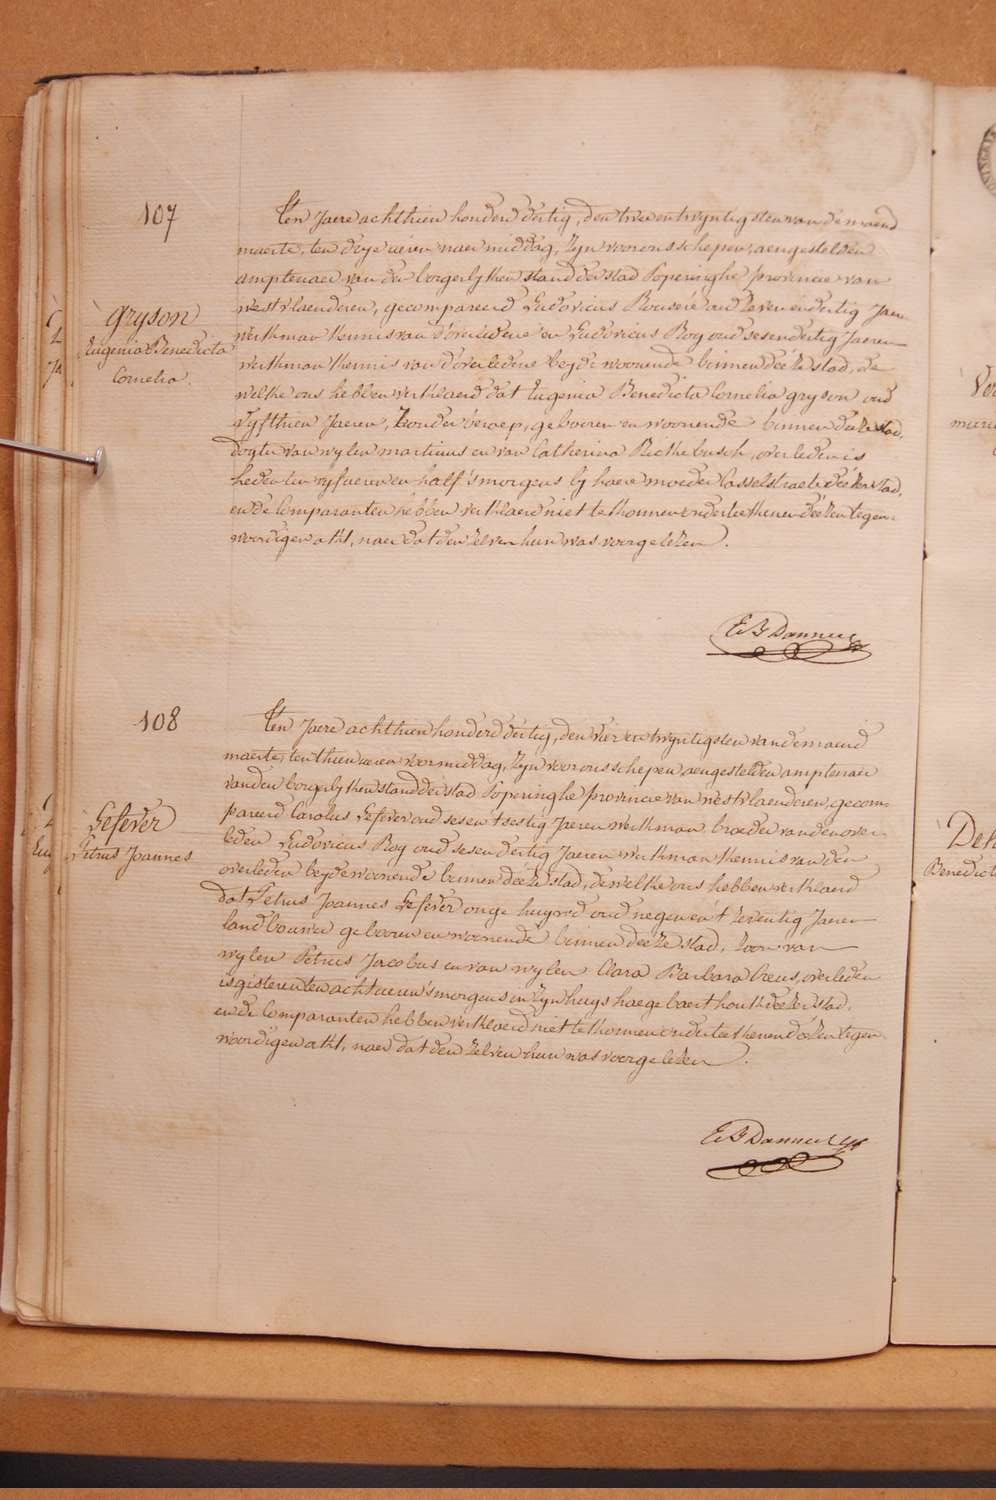 107
Ten Jaere achthien honderd dertig, den twee en twyntigsten van de maend
maerte, ten drye ueren naer middag, Zyn voor ons schepen, aengestelden
amptenaer van den borgerlyken stand der stad Poperinghe provincie van
westvlaenderen, gecompareerd Ludovicus Rousere oud zeven en dertig Jaeren
Gryson
Eugenia Benedicta
Cornelia.
werkman kennis van d'overledene en Ludovicus Roy oud ses en dertig Jaeren
werkman kennis van d'overledene beyde woonende binnen deeze stad, de
welke ons hebben verklaerd dat Eugenia Benedicta Cornelia gryson oud
vyfthien Jaeren, Zonder beroep, gebooren en woonende binnen deeze stad,
dogter van wylen martinus en van Catherina Riethebusch, overleden is
heden ten vyf ueren en half 's morgens by haere moeder Casselstraete deezer stad,
en de Comparanten hebben verklaerd niet te konnen onderteekenen deezen tegen-
woordigen akt, naer dat den zelven hun was voorgelezen.
108
Ten Jaere achthien honderd dertig, den vier en twyntigsten van de maend
maerte, ten thien ueren voormiddag, Zyn voor ons schepen aengestelden amptenaer
van den borgerlyken stand der stad Poperinghe provincie van westvlaenderen, gecom-
pareerd Carolus Lefever oud ses en t sestig Jaeren werkman broeder van den over-
Lefever
Petrus Joannes
leden Ludovicus Roy oud ses en dertig Jaeren werkman kennis van den
overleden beyde woonende binnen deeze stad, de welke ons hebben verklaerd
dat Petrus Joannes Lefever ongehuywd oud negen en t zeventig Jaeren
landbouwer gebooren en woonende binnen deeze stad, zoon van
wylen Petrus Jacobus en van wylen Clara Barbara Coeus, overleden
is gisteren ten acht ueren 's morgens in Zyn huys haegebaert houk deezer stad,
en de Comparanten hebben verklaerd niet te konnen onderteekenen deezen tegen-
woordigen akt, naer dat den zelven hun was voorgelezen.